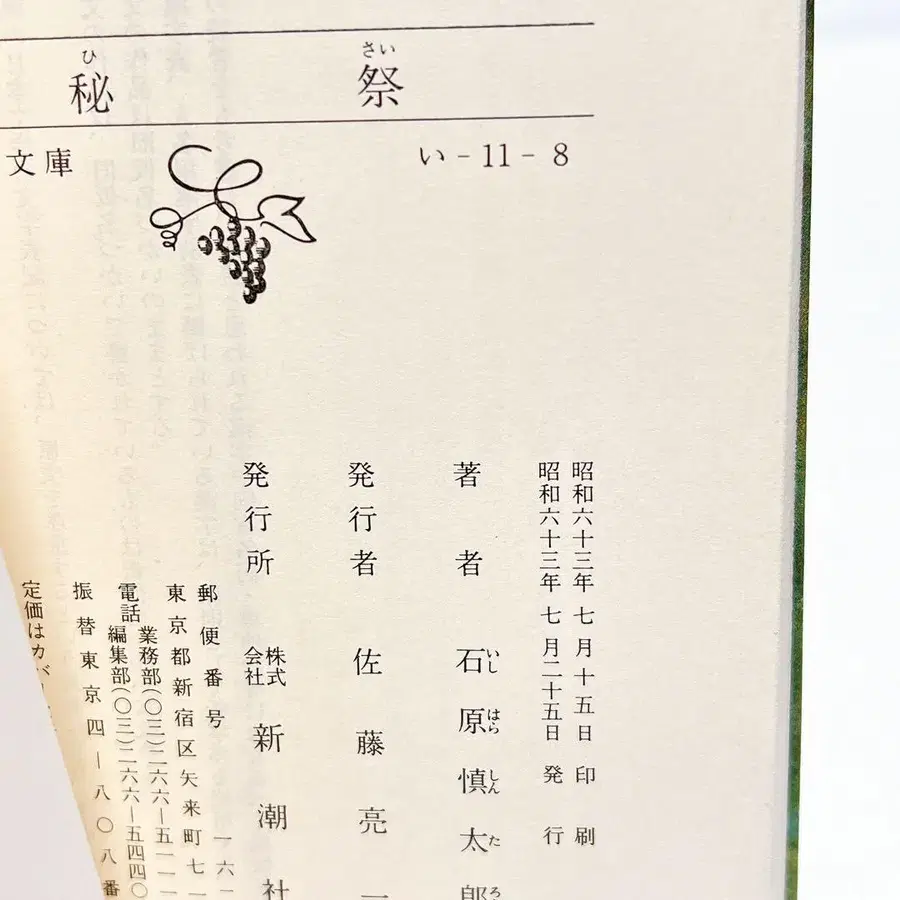 ひ さい
秘祭
文庫 い-11-8
昭和六十三年七月十五日印刷
昭和六十三年七月二十五日発行
著者 石原慎太郎
いし はら しん た ろ
発行者 佐藤亮一
発行所 株式会社新潮社
郵便番号 一六一
東京都新宿区矢来町七一
電話 業務部(〇三)二六六―五一一一
編集部(〇三)二六六―五四四〇
振替東京四―八〇八番
定価はカバ